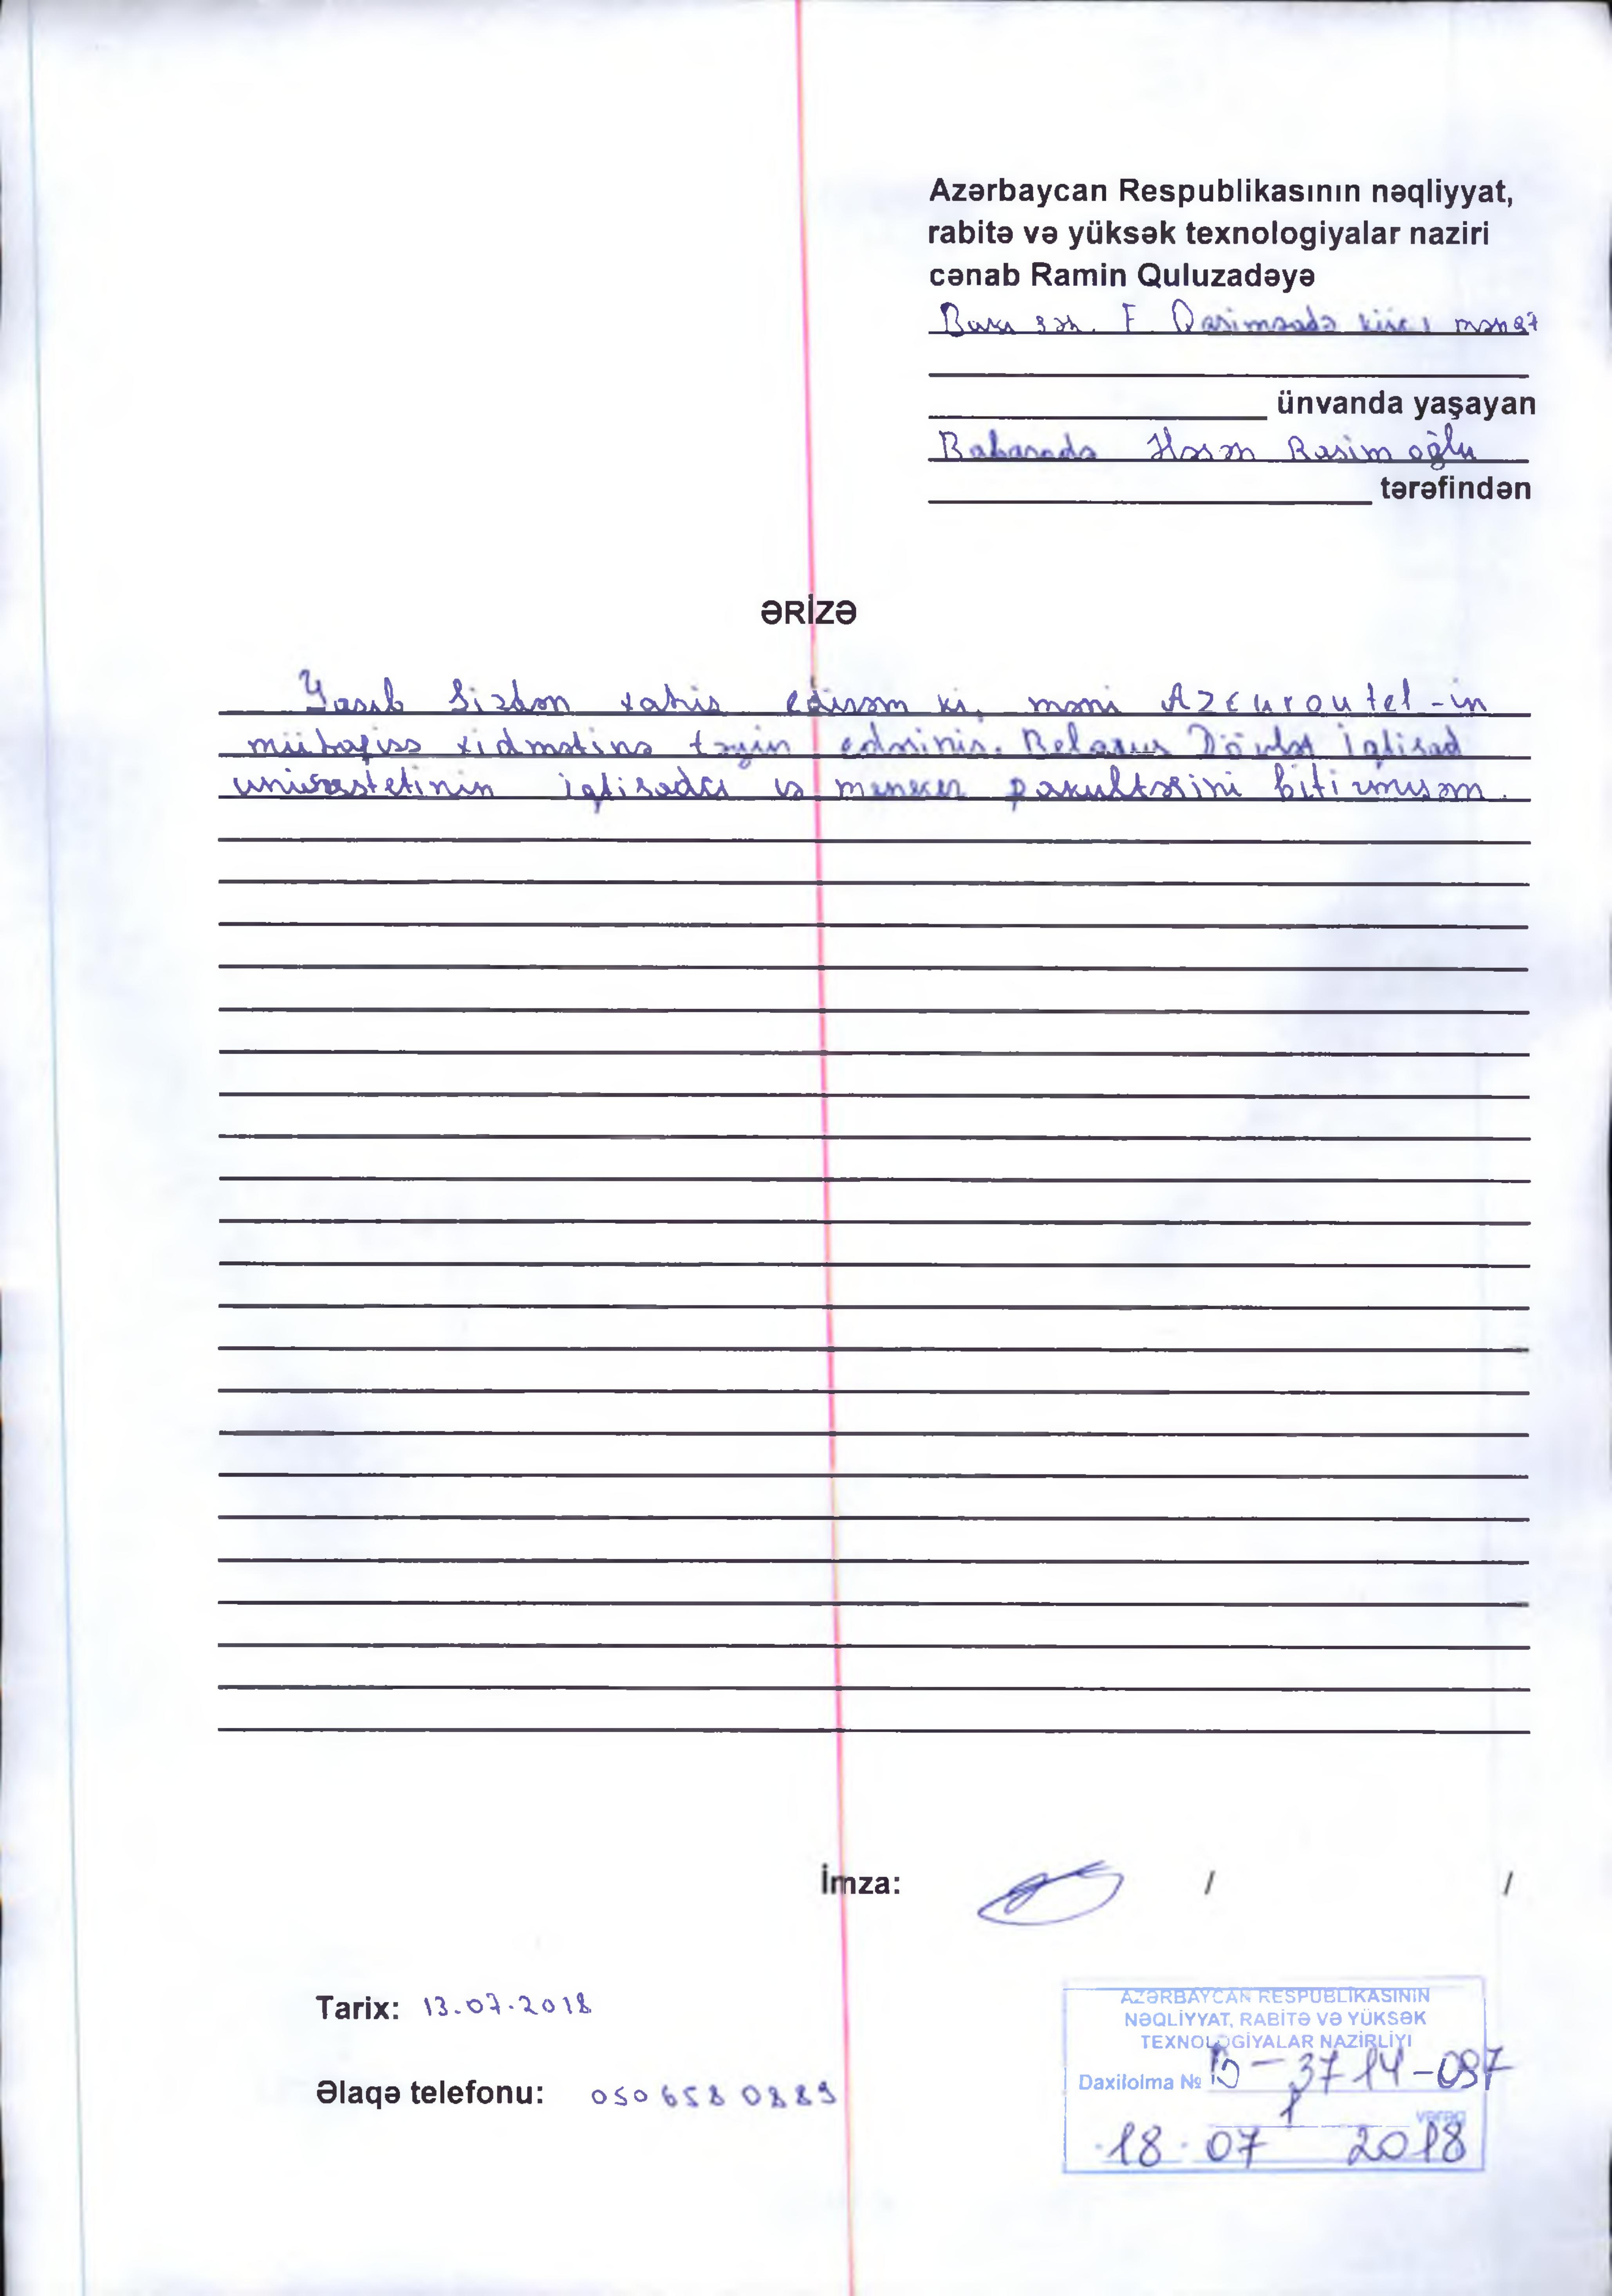 Azərbaycan Respublikasının nəqliyyat,
rabitə və yüksək texnologiyalar naziri
cənab Ramin Quluzadəyə
Bakı şəh. F Qasımzadə küç.
ünvanda yaşayan
Babazadə Həsən Rasim oğlu
tərəfindən
ƏRİZƏ
Yazıb Sizdən xahiş edirəm ki, məni AzEuroutel-in
mühafizə xidmətinə təyin edəsiniz. Belarus Dövlət İqtisad
iqtisadçı və menecer bitirmişəm.
İmza: / /
Tarix: 13.07.2018
Əlaqə telefonu: 050 658 0889
AZƏRBAYCAN RESPUBLİKASININ
NƏQLİYYAT, RABİTƏ VƏ YÜKSƏK
TEXNOLOGİYALAR NAZİRLİYİ
Daxilolma № -3714-097
1 vərəq
18.07 2018